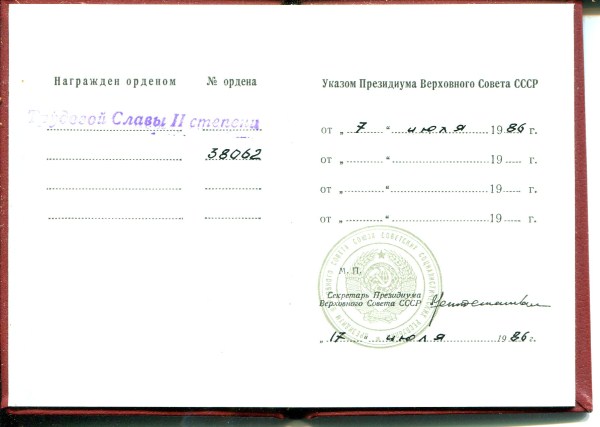 Награжден орденом
№ ордена
Трудовой Славы II степени
38062
Указом Президиума Верховного Совета СССР
от „ 7 “ июля 1986 г.
от „ “ 19 г.
от „ “ 19 г.
от „ “ 19 г.
М. П.
Секретарь Президиума
Верховного Совета СССР
„ 17 “ июля 1986 г.